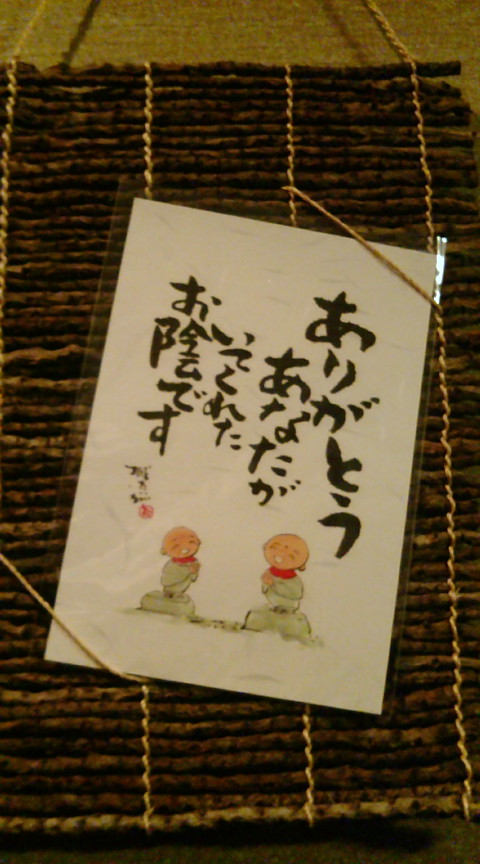 ありがとう
あなたが
いてくれた
お陰です